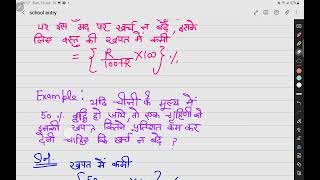 school entry
पर इस मद पर खर्च न बढ़े, इसके
लिए वस्तु की खपत में कमी
= { R / 100+R × 100 } %
Example: यदि चीनी के मूल्य में
50 % वृद्धि हो जाये, तो एक गृहिणी को
इसकी खपत कितने प्रतिशत कम कर
देनी चाहिए कि खर्च न बढ़े ?
Sol. खपत में कमी